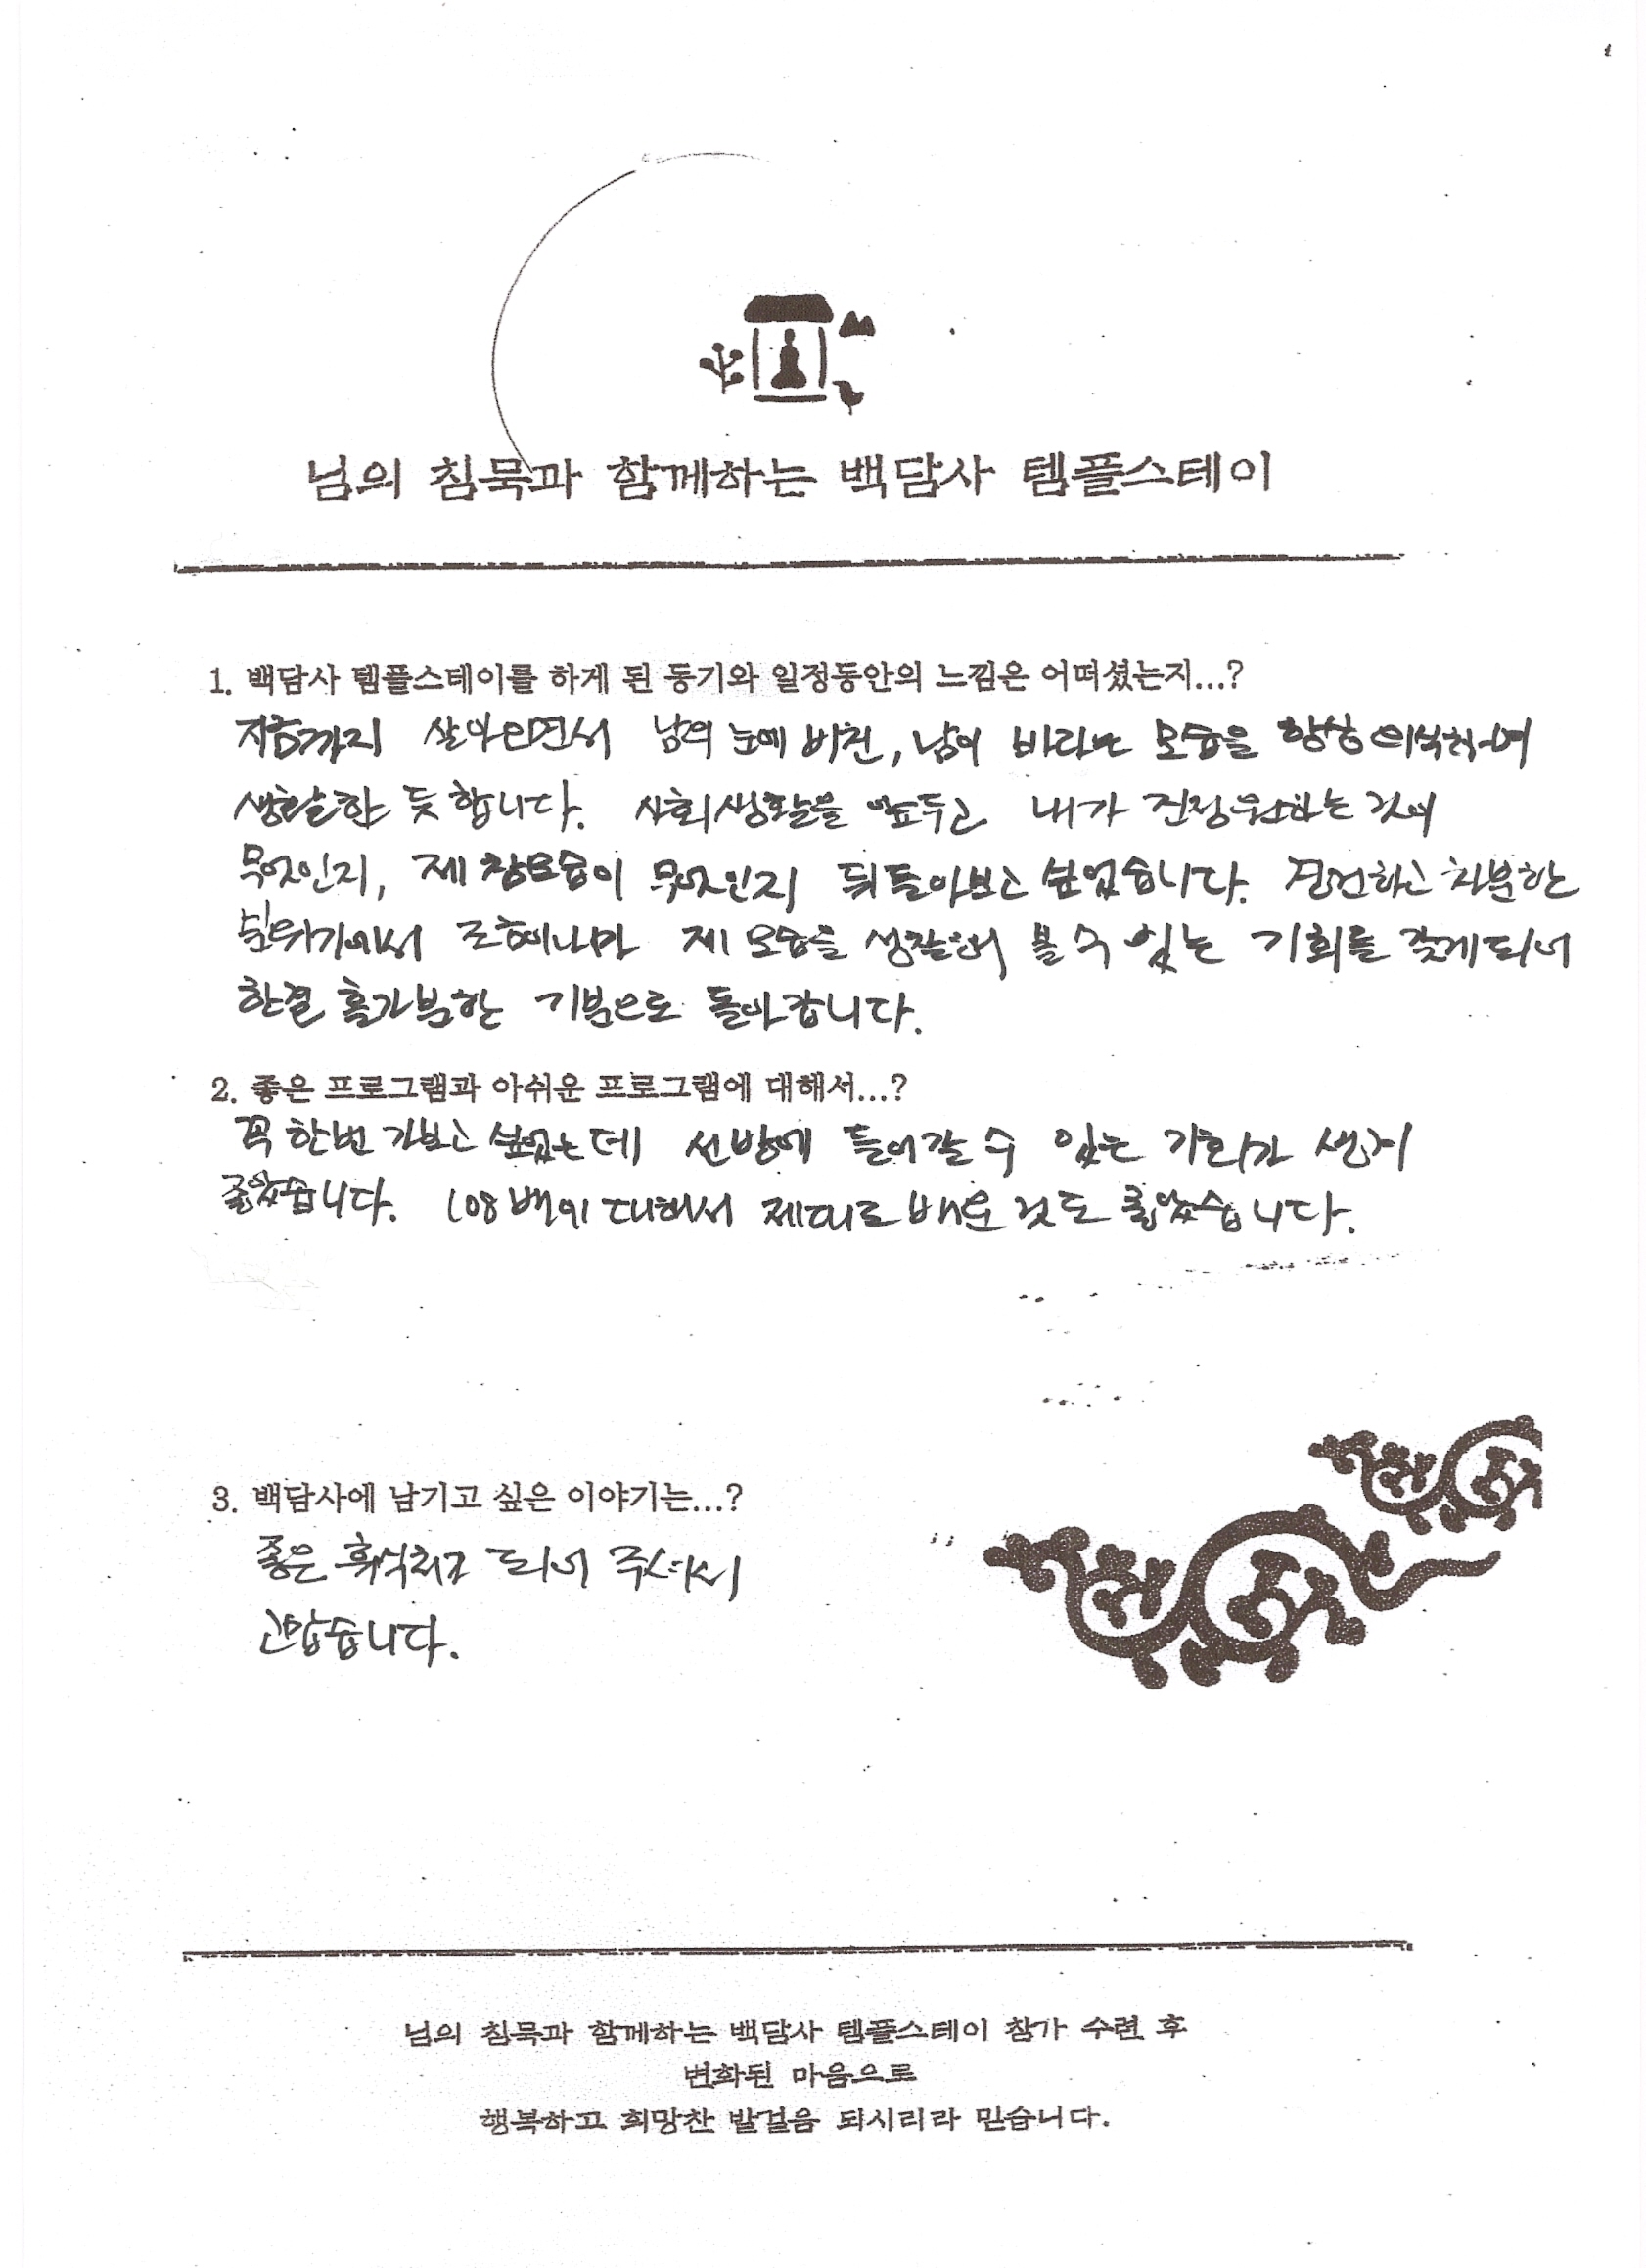 님의 침묵과 함께하는 백담사 템플스테이
1. 백담사 템플스테이를 하게 된 동기와 일정동안의 느낌은 어떠셨는지...?
지금까지 살아오면서 남의 눈에 비친, 남이 바라는 모습을 항상 의식하며
생활한 듯 합니다. 사회생활을 앞두고 내가 진정원하는 것이
무엇인지, 제 참모습이 무엇인지 뒤돌아보고 싶었습니다. 경건하고 차분한
분위기에서 조금이나마 제 모습을 성찰해 볼 수 있는 기회를 갖게되어
한결 홀가분한 기분으로 돌아갑니다.
2. 좋은 프로그램과 아쉬운 프로그램에 대해서...?
꼭 한번 가보고 싶었는데 선방에 들어갈 수 있는 기회가 생겨
좋았습니다. 108배에 대해서 제대로 배운 것도 좋았습니다.
3. 백담사에 남기고 싶은 이야기는...?
좋은 휴식처로 되어 주셔서
고맙습니다.
님의 침묵과 함께하는 백담사 템플스테이 참가 수련 후
변화된 마음으로
행복하고 희망찬 발걸음 되시리라 믿습니다.